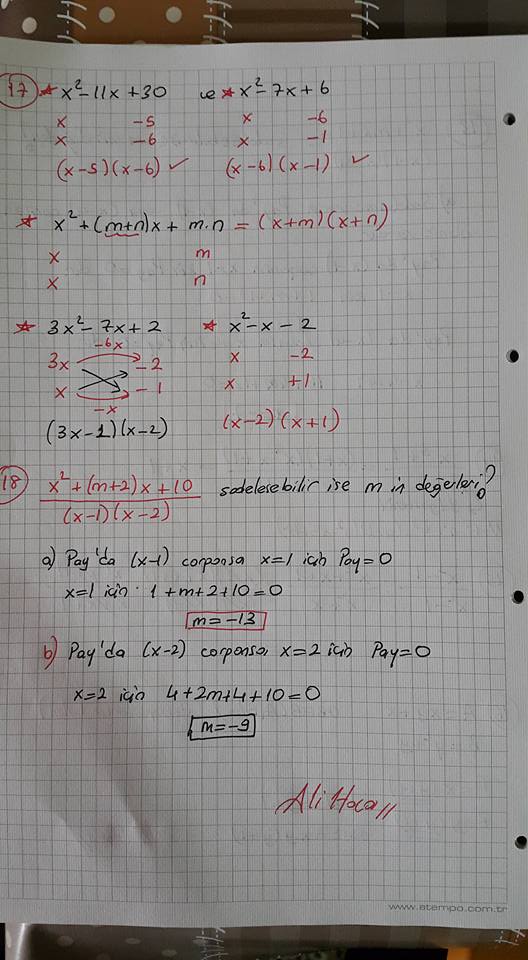 17) * x²-11x+30 ve * x²-7x+6
x -5 x -6
x -6 x -1
(x-5)(x-6) ✓ (x-6)(x-1) ✓
* x²+(m+n)x+m.n = (x+m)(x+n)
x m
x n
* 3x²-7x+2 * x²-x-2
-6x
3x -2 x -2
x -1 x +1
-x
(3x-1)(x-2) (x-2)(x+1)
18) x²+(m+2)x+10 / (x-1)(x-2) sadeleşebilir ise m in değerleri?
a) Pay'da (x-1) çarpansa x=1 için Pay=0
x=1 için 1+m+2+10=0
m=-13
b) Pay'da (x-2) çarpansa, x=2 için Pay=0
x=2 için 4+2m+4+10=0
m=-9
Ali Hoca
www.atempo.com.tr